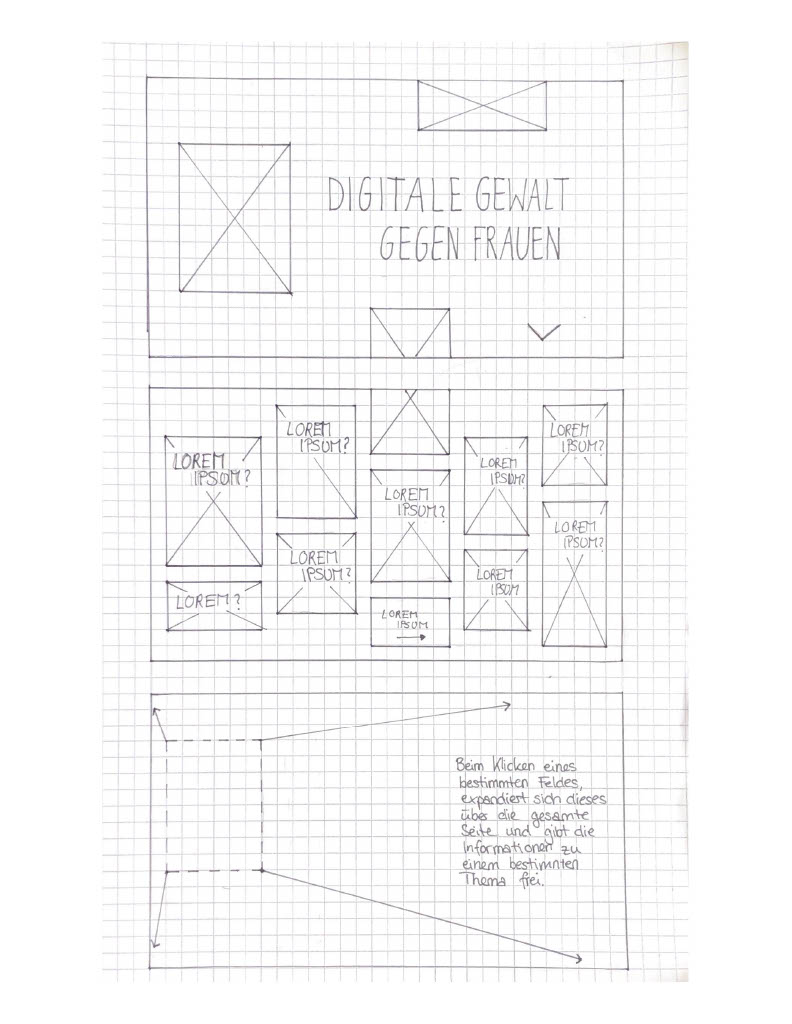 DIGITALE GEWALT
GEGEN FRAUEN
LOREM
IPSUM?
LOREM?
LOREM
IPSUM?
LOREM
IPSUM?
LOREM
IPSUM?
LOREM
IPSUM
LOREM
IPSUM?
LOREM
IPSUM
LOREM
IPSUM?
LOREM
IPSUM?
Beim Klicken eines
bestimmten Feldes,
expandiert sich dieses
über die gesamte
Seite und gibt die
Informationen zu
einem bestimmten
Thema frei.